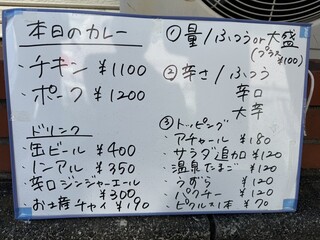 本日のカレー
・チキン ¥1100
・ポーク ¥1200
ドリンク
・缶ビール ¥400
・ノンアル ¥350
・辛口ジンジャーエール
¥300
・お土産チャイ ¥190
①量/ふつう or 大盛
(プラス¥100)
②辛さ/ふつう
辛口
大辛
③トッピング
・アチャール ¥180
・サラダ追加 ¥120
・温泉たまご ¥120
・うずら ¥120
・パクチー ¥120
・ピクルス1本 ¥70